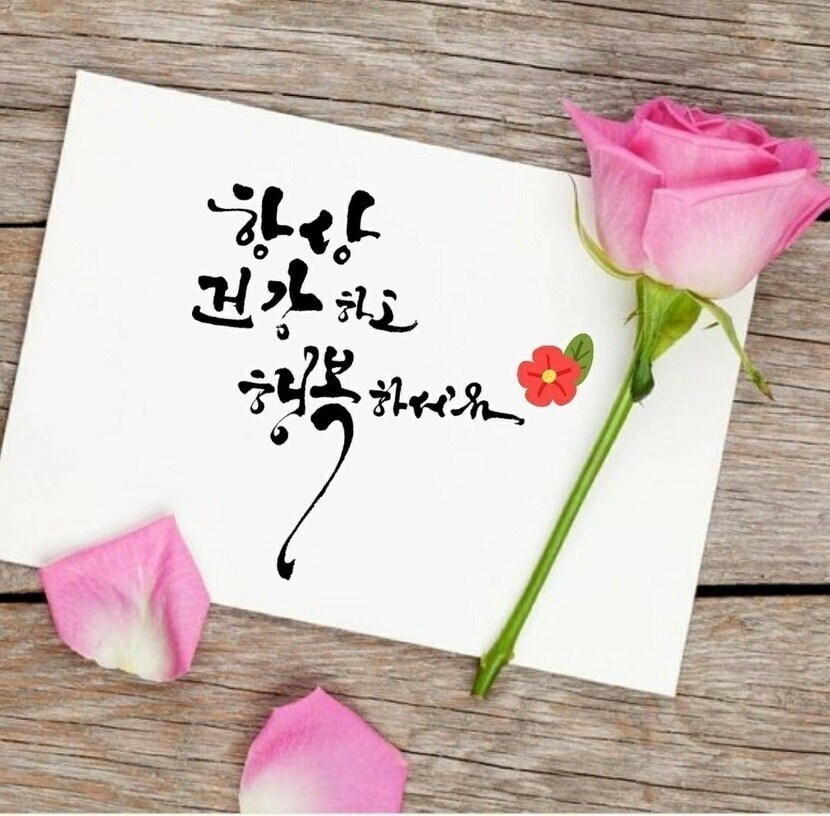 항상
건강하고
행복하세요